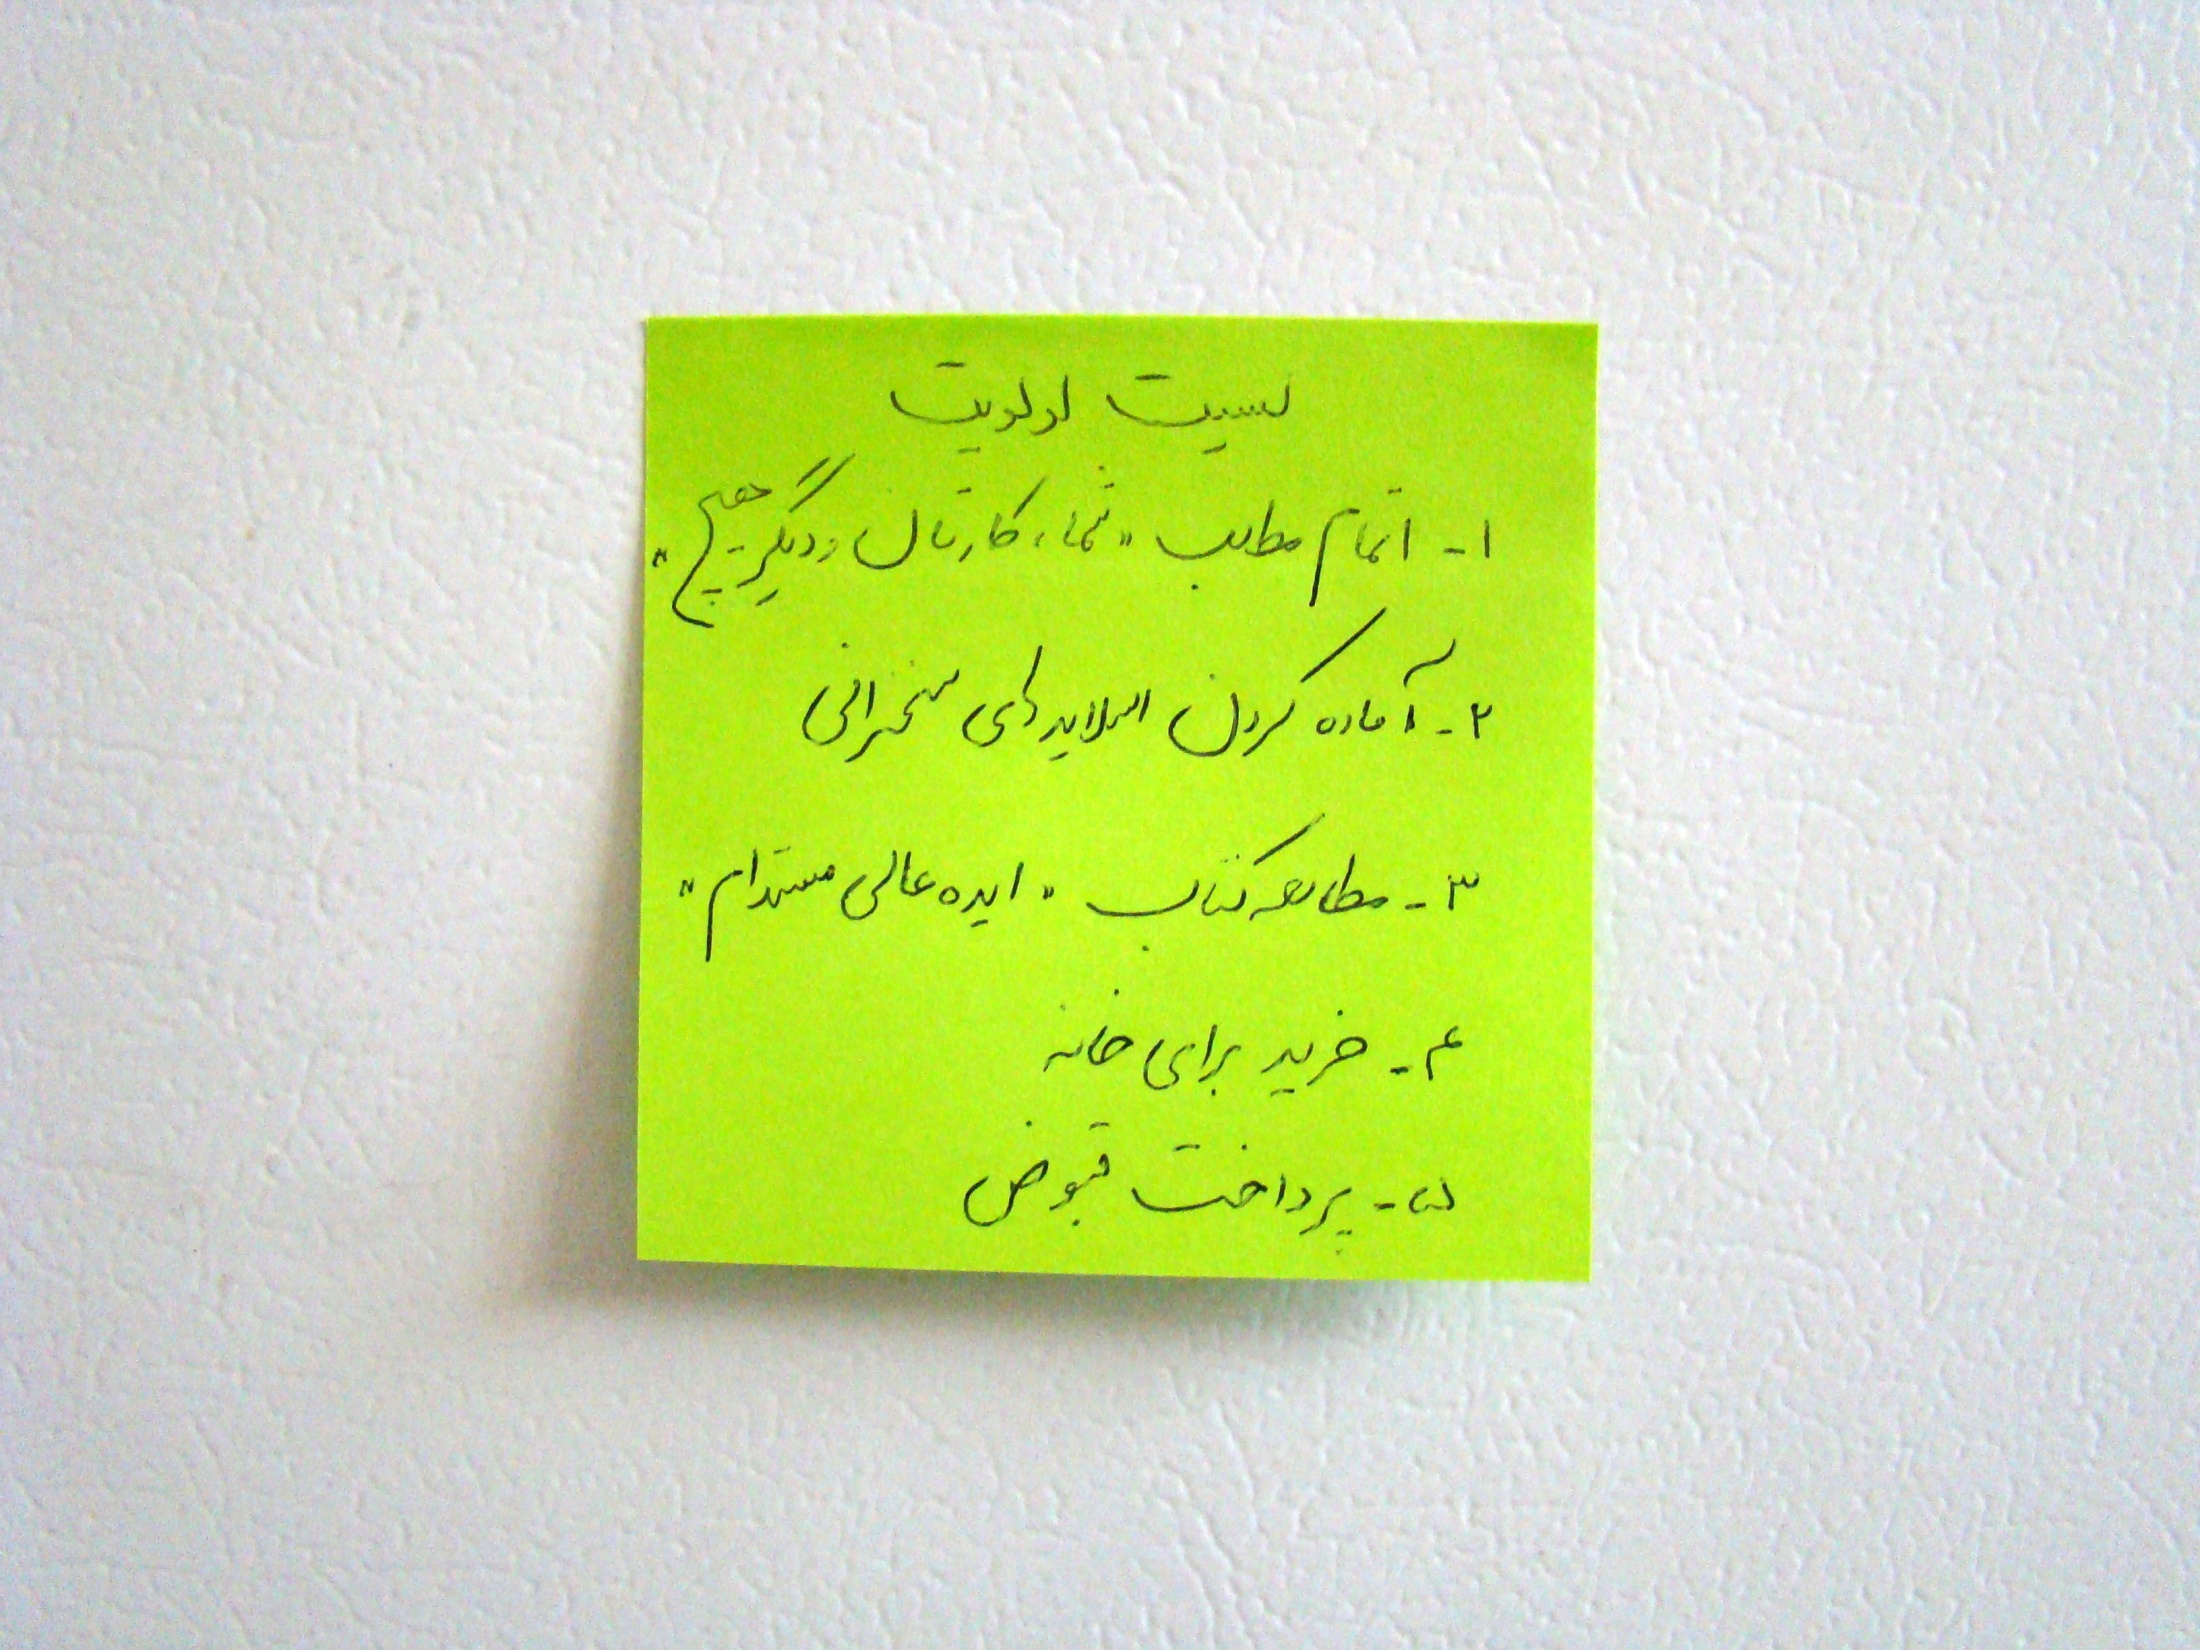 لیست اولویت
۱- اتمام مطلب "شما، کارتان و دیگر هیچ"
۲- آماده کردن اسلایدهای سخنرانی
۳- مطالعه کتاب "ایده عالی مستدام"
۴- خرید برای خانه
۵- پرداخت قبوض